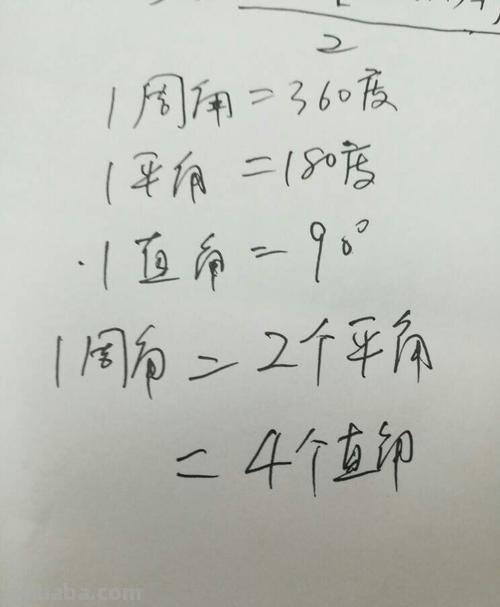 2
1周角=360度
1平角=180度
·1直角=90°
1周角=2个平角
=4个直角